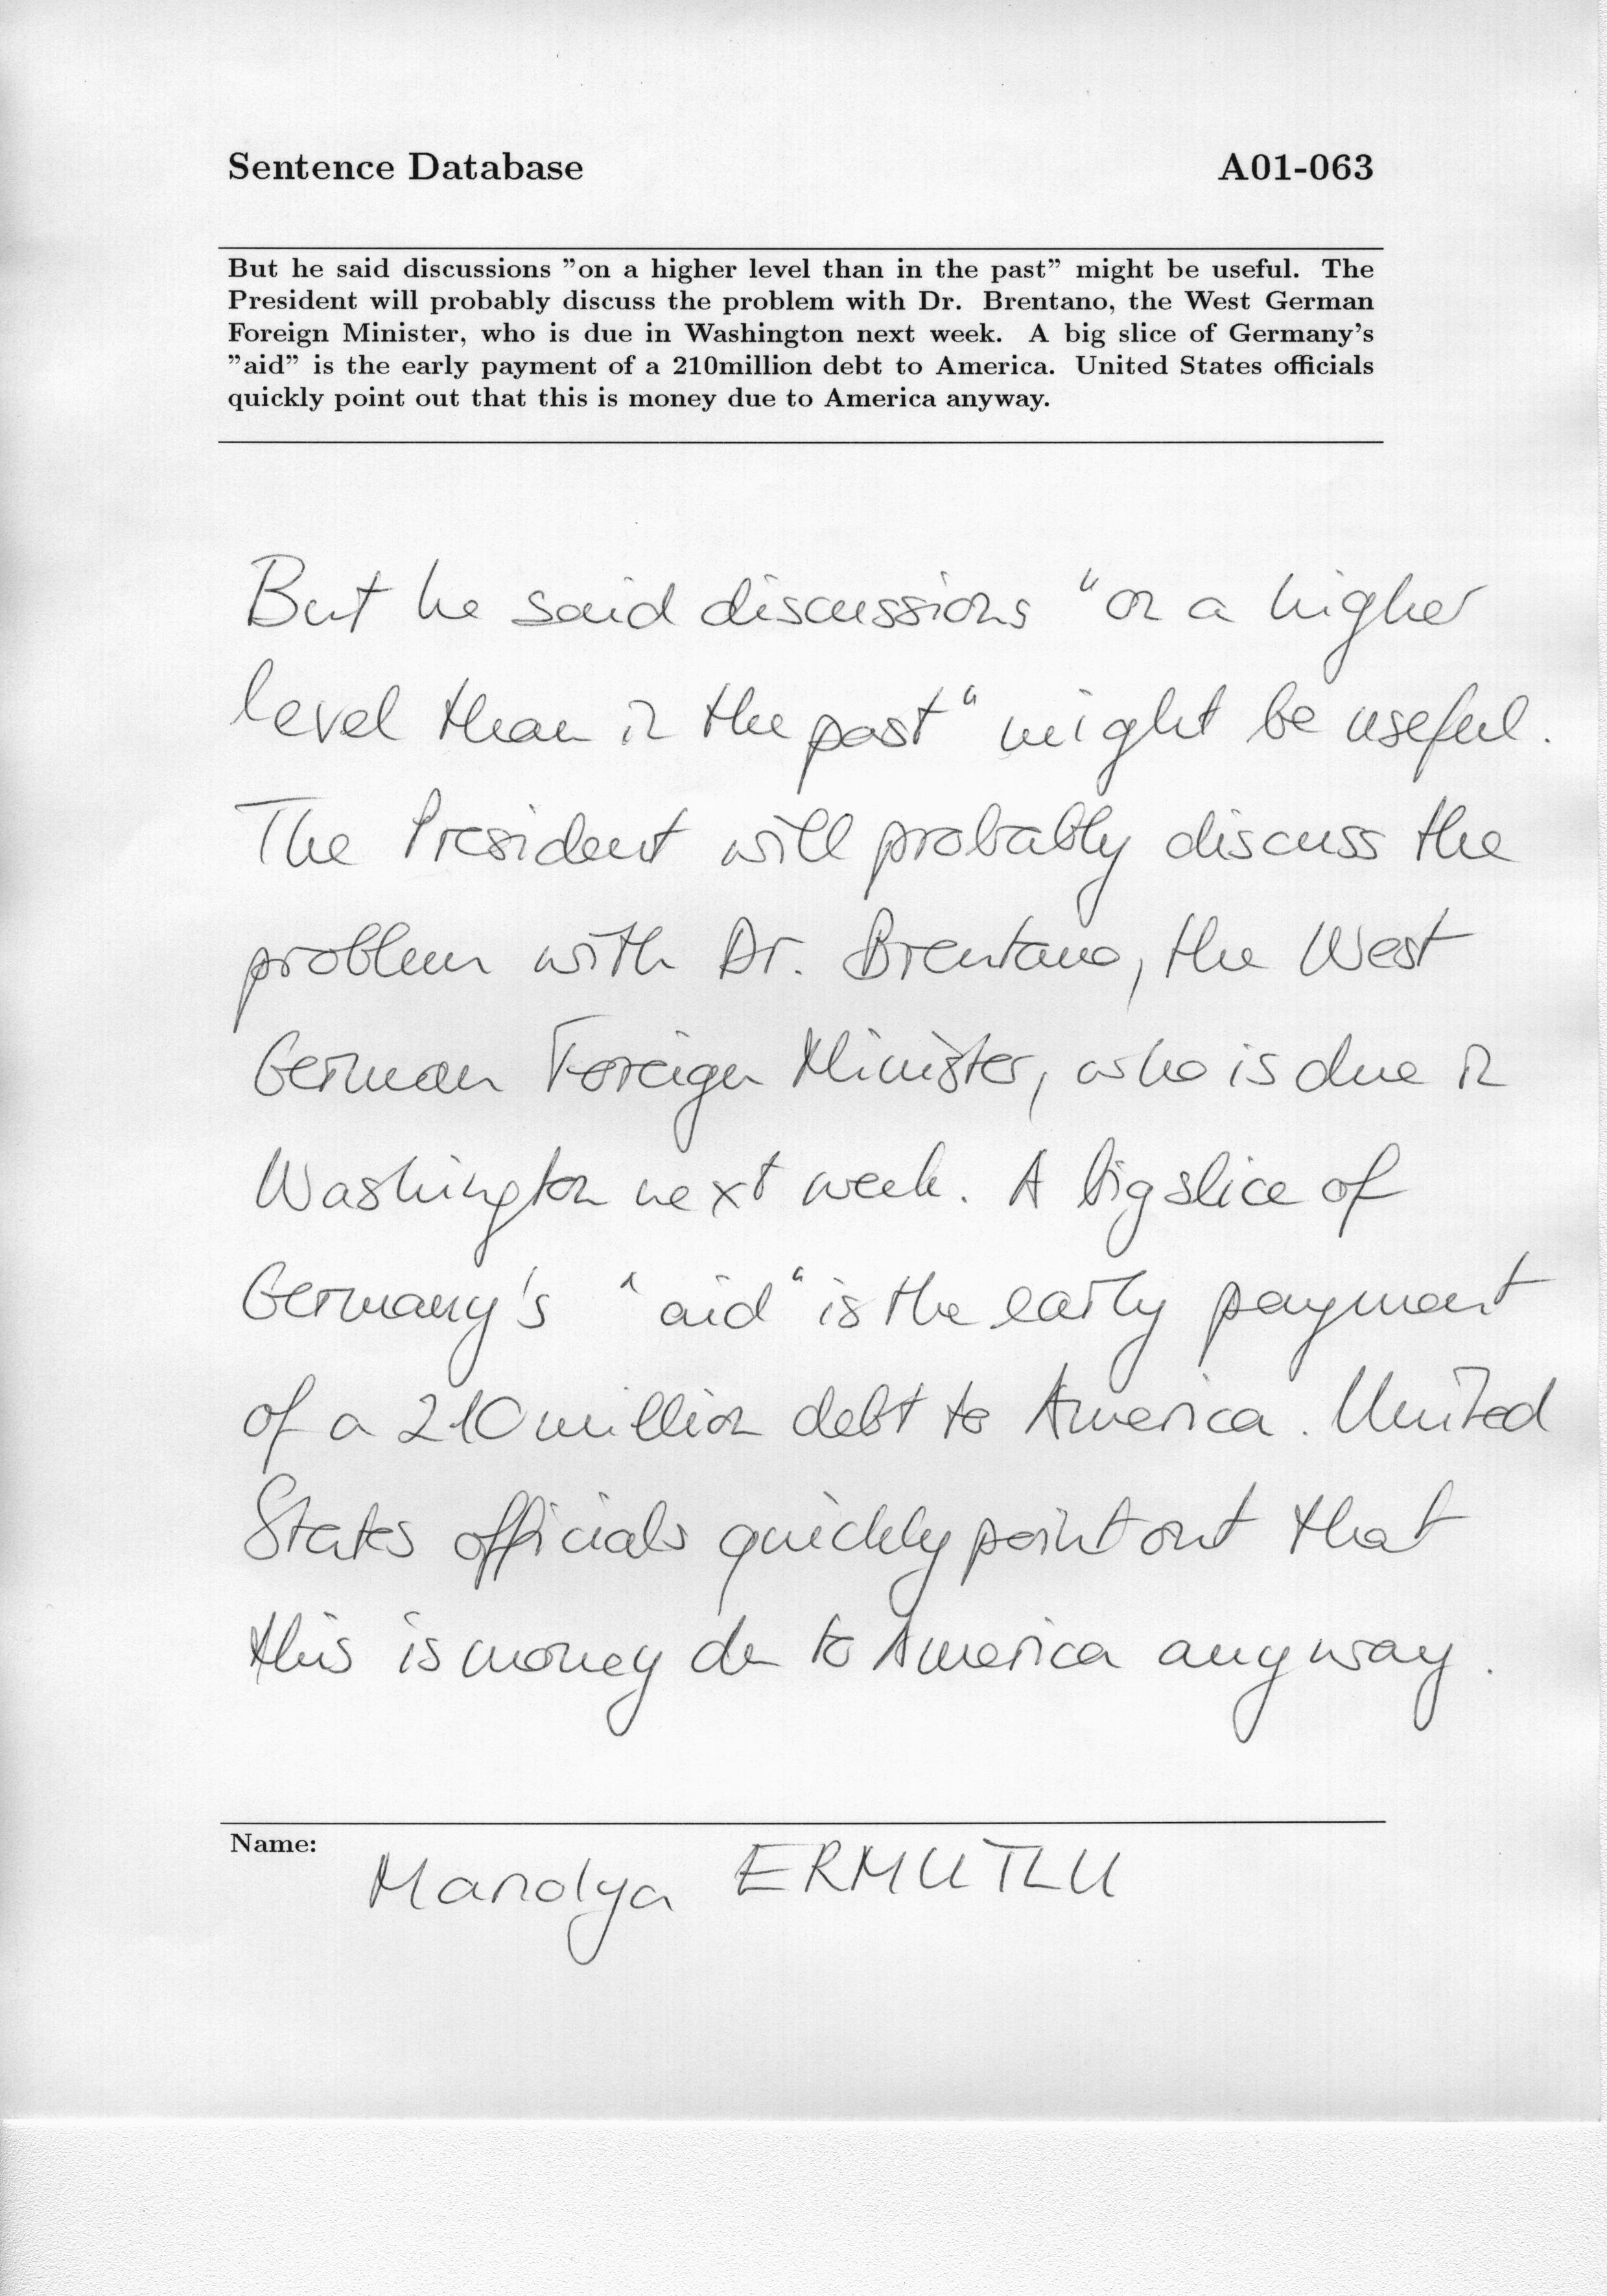 Sentence Database A01-063
But he said discussions "on a higher level than in the past" might be useful. The
President will probably discuss the problem with Dr. Brentano, the West German
Foreign Minister, who is due in Washington next week. A big slice of Germany's
"aid" is the early payment of a 210million debt to America. United States officials
quickly point out that this is money due to America anyway.
But he said discussions "on a higher
level than in the past" might be useful.
The President will probably discuss the
problem with Dr. Brentano, the West
German Foreign Minister, who is due in
Washington next week. A big slice of
Germany's "aid" is the early payment
of a 210million debt to America. United
States officials quickly point out that
this is money du to America anyway.
Name: Manolya ERMUTLU